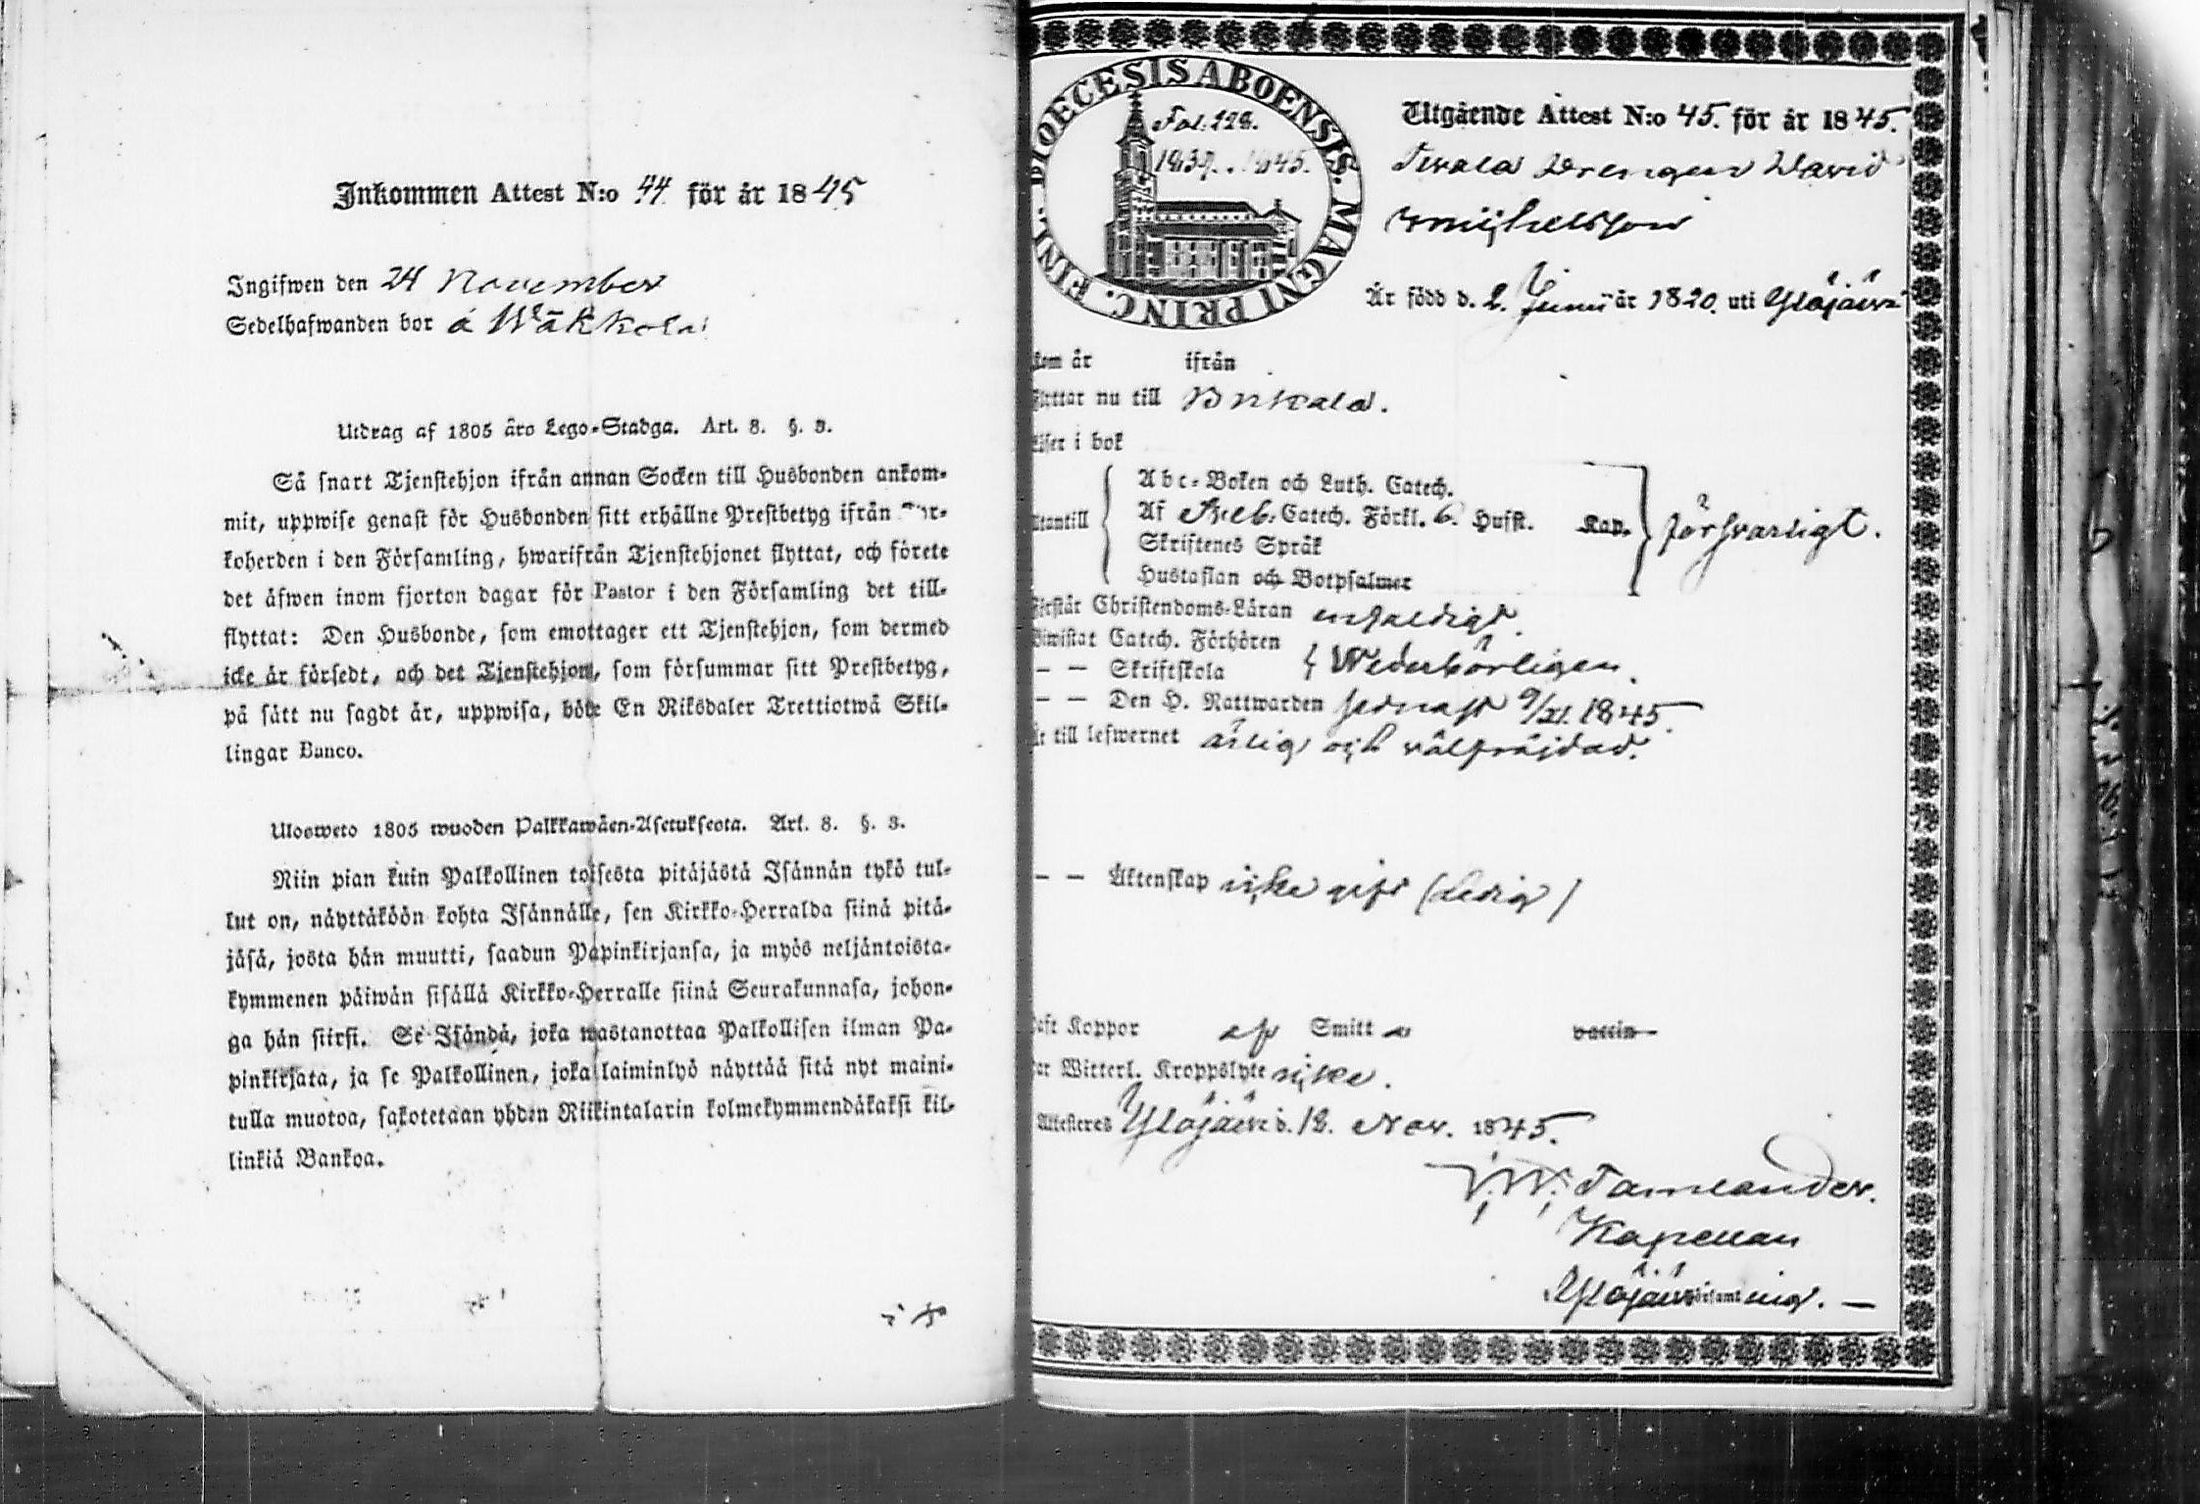 Inkommen Attest N:o 44 för år 1845
Ingifwen den 24 November
Sedelhafwanden bor á Wäkkola
Utdrag af 1805 års Lego-Stadga. Art. 8. §. 3.
Så snart Tjenstehjon ifrån annan Socken till Husbonden ankom-
mit, uppwise genast för Husbonden sitt erhållne Prestbetyg ifrån
koherden i den Församling, hwarifrån Tjenstehjonet flyttat, och förete
det äfwen inom fjorton dagar för Pastor i den Församling det till-
flyttat: Den Husbonde, som emottager ett Tjenstehjon, som dermed
icke är försedt, och det Tjenstehjon, som försummar sitt Prestbetyg,
på sätt nu sagdt är, uppwisa, böte En Riksdaler Trettiotwå Skil-
lingar Banco.
Ulosweto 1805 wuoden Palkkawäen-Asetuksesta. Art. 8. §. 3.
Niin pian kuin Palkollinen toisesta pitäjästä Isännän tykö tul-
lut on, näyttäköön kohta Isännälle, sen Kirkko-Herralda siinä pitä-
jäsä, josta hän muutti, saadun Papinkirjansa, ja myös neljäntoista-
kymmenen päiwän sisällä Kirkko-Herralle siinä Seurakunnasa, johon-
ga hän siirsi. Se Isändä, joka wastanottaa Palkollisen ilman Pa-
pinkirjata, ja se Palkollinen, joka laiminlyö näyttää sitä nyt maini-
tulla muotoa, sakotetaan yhden Riikintalarin kolmekymmendäkaksi kil-
linkiä Bankoa.
DIOECESIS ABOENSIS. MAGNI PRINC. FINL.
Fol. 128.
1839. 1845.
Utgående Attest N:o 45. för år 1845.
Drengen David
Michelsson
Är född d. 2. Junii år 1820. uti Ylöjärvi
kom år ifrån
Flyttar nu till Birkala.
Läser i bok
Utantill
Abc-Boken och Luth. Catech.
Af Sveb. Catech. Förkl. 6. Husst. Kap. försvarligt.
Skriftenes Språk
Hustaflan och Botpsalmer
Förstår Christendoms-Läran enfaldigt.
Biwistat Catech. Förhören
— — Skriftskola } Wederbörligen.
— — Den H. Nattwarden sednast 9/XI. 1845.
Är till lefwernet ärlig och välfräjdad.
— — Äktenskap icke gift (ledig)
Haft Koppor af Smitt vaccin
Har Witterl. Kroppslyte icke.
Attesteras Ylöjärvi d. 12. Nov. 1845.
Tamlander.
Kapellan
Ylöjärvi församling. —